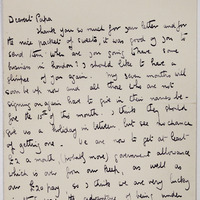 Dearest Papa
Thank you so much for your letter and for
the nice packet of sweets, it was good of you to
send them. When are you going to have some
business in London? I should like to have a
glimpse of you again. My seven months will
soon be up now and all those who are not
signing on again have to give in their names be-
fore the 15th of this month. I think they should
give us a holiday in between but see no chance
of getting one. We are now to get at least
£2 a month (perhaps more) government allowance
which is over from our keep, as well as
our £20 pay, so I think we are very lucky
being under